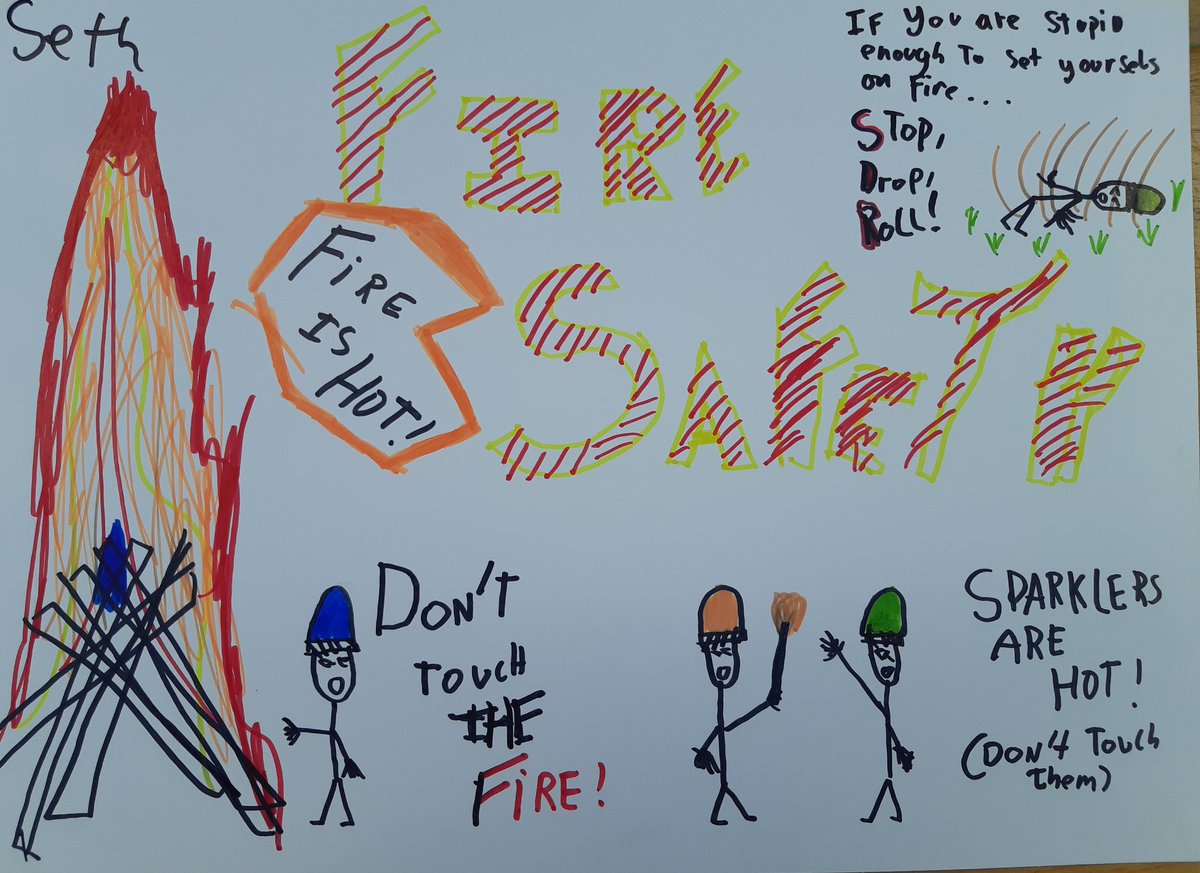 Seth
FIRE
SAFETY
IF You are Stupid
enough To set yoursels
on Fire....
STOP,
Drop,
Roll!
FIRE
IS
HOT!
DON'T
TOUCH
THE
FIRE!
SPARKLERS
ARE
HOT!
(DON4 TOUCH
them)